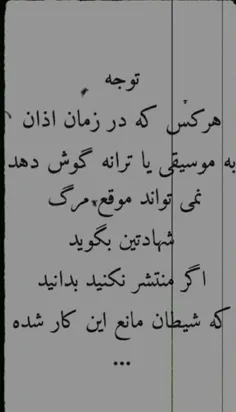 توجه
هرکس که در زمان اذان
به موسیقی یا ترانه گوش دهد
نمی تواند موقع مرگ
شهادتین بگوید
اگر منتشر نکنید بدانید
که شیطان مانع این کار شده
...